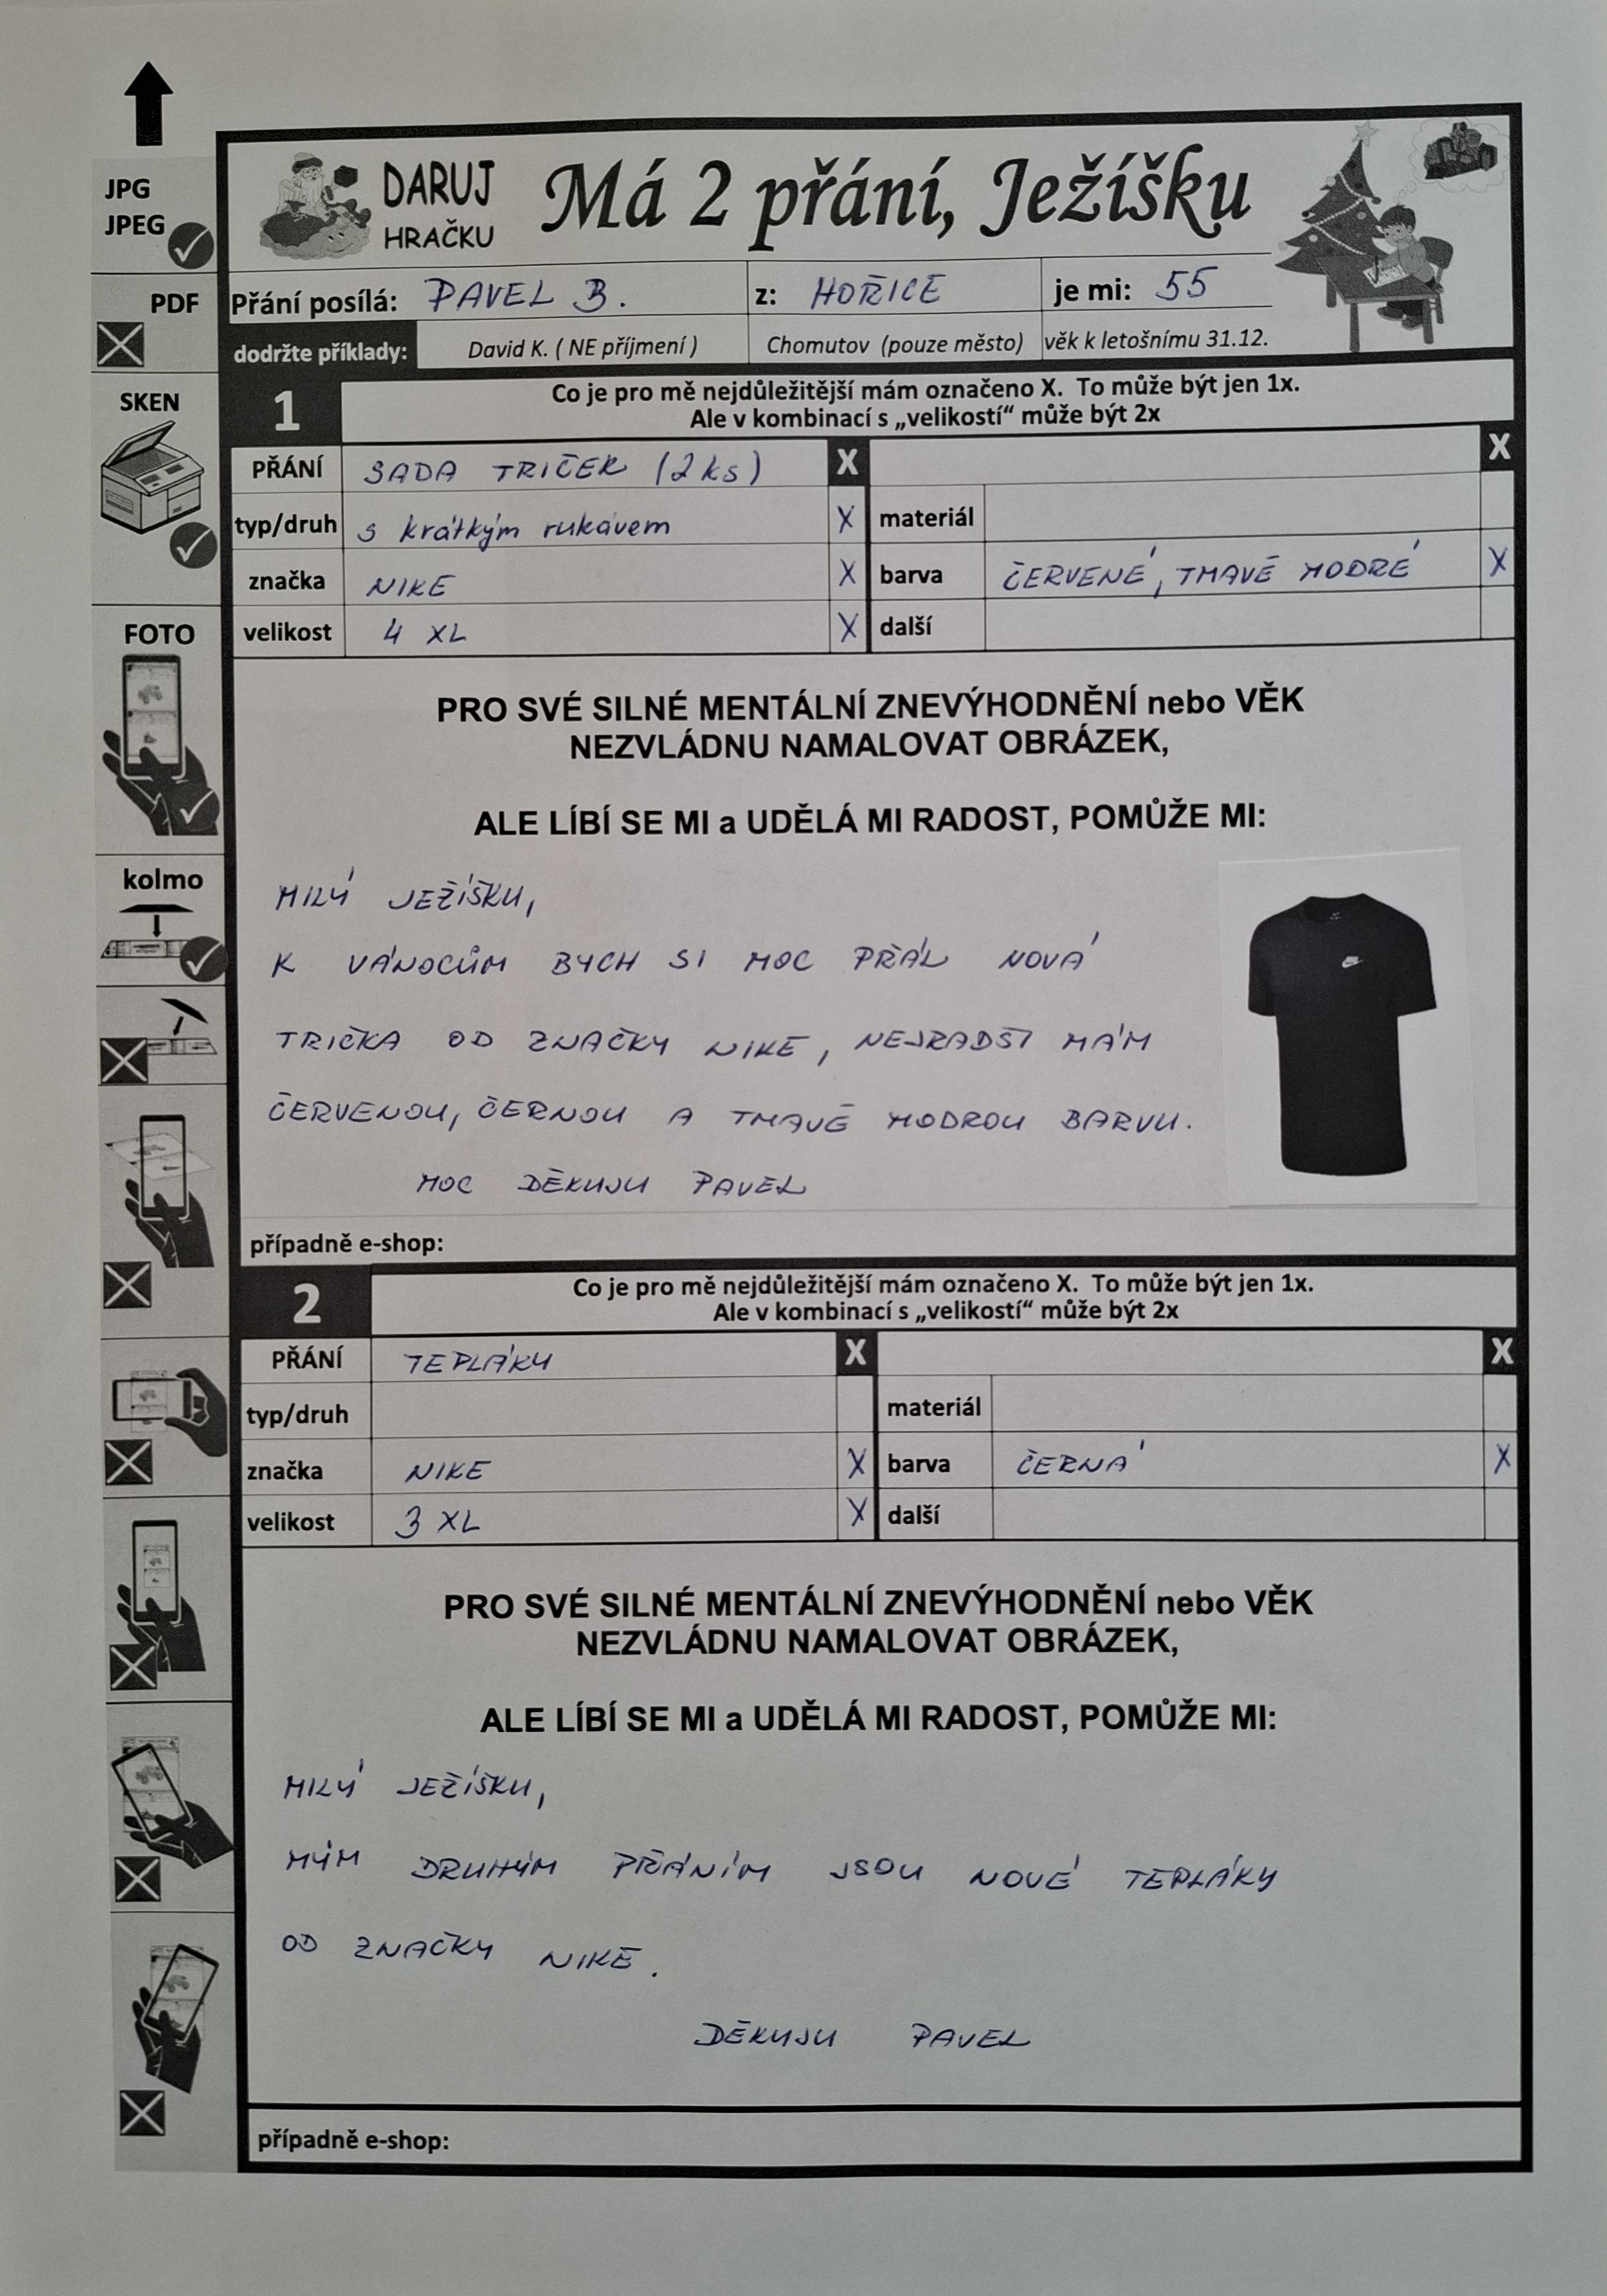 JPG
JPEG
PDF
SKEN
FOTO
kolmo
DARUJ
HRAČKU
Má 2 přání, Ježíšku
Přání posílá: PAVEL B. z: HOŘICE je mi: 55
dodržte příklady: David K. ( NE příjmení ) Chomutov (pouze město) věk k letošnímu 31.12.
1
Co je pro mě nejdůležitější mám označeno X. To může být jen 1x.
Ale v kombinací s „velikostí“ může být 2x
PŘÁNÍ SADA TRIČEK (2 ks) X X
typ/druh s krátkým rukávem X materiál
značka NIKE X barva ČERVENÉ, TMAVĚ MODRÉ X
velikost 4 XL X další
PRO SVÉ SILNÉ MENTÁLNÍ ZNEVÝHODNĚNÍ nebo VĚK
NEZVLÁDNU NAMALOVAT OBRÁZEK,
ALE LÍBÍ SE MI a UDĚLÁ MI RADOST, POMŮŽE MI:
MILÝ JEŽÍŠKU,
K VÁNOCŮM BYCH SI MOC PŘÁL NOVÁ
TRIČKA OD ZNAČKY NIKE, NEJRADŠI MÁM
ČERVENOU, ČERNOU A TMAVĚ MODROU BARVU.
MOC DĚKUJU PAVEL
případně e-shop:
2
Co je pro mě nejdůležitější mám označeno X. To může být jen 1x.
Ale v kombinací s „velikostí“ může být 2x
PŘÁNÍ TEPLÁKY X X
typ/druh materiál
značka NIKE X barva ČERNÁ X
velikost 3 XL X další
PRO SVÉ SILNÉ MENTÁLNÍ ZNEVÝHODNĚNÍ nebo VĚK
NEZVLÁDNU NAMALOVAT OBRÁZEK,
ALE LÍBÍ SE MI a UDĚLÁ MI RADOST, POMŮŽE MI:
MILÝ JEŽÍŠKU,
MÝM DRUHÝM PŘÁNÍM JSOU NOVÉ TEPLÁKY
OD ZNAČKY NIKE.
DĚKUJU PAVEL
případně e-shop: